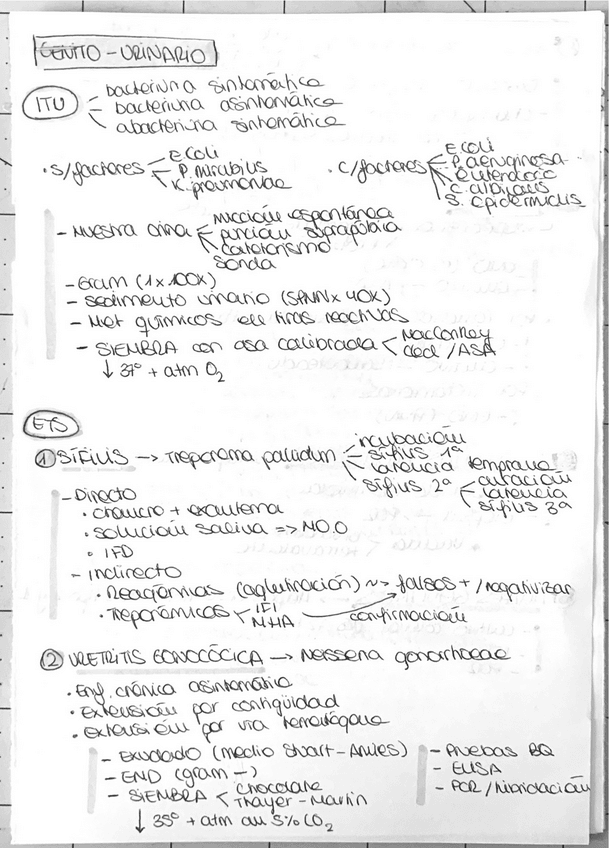 GENITO - URINARIO
ITU
bacteriuria sintomática
bacteriuria asintomática
abacteriuria sintomática
· S/factores
E coli
P. mirabilis
K. pneumoniae
· C/factores
E coli
P. aeruginosa
C. albicans
S. epidermidis
- Muestra orina
micción espontánea
punción suprapúbica
cateterismo
sonda
- Gram (1x100x)
- Sedimento urinario (SPNN x 40x)
- Met químicos de tiras reactivas
- SIEMBRA con asa calibrada
MacConkey
cled / ASA
↓ 37º + atm O2
ETS
① SÍFILIS → Treponema pallidum
incubación
sífilis 1ª
latencia temprana
sífilis 2ª
curación
latencia
sífilis 3ª
- Directo
· chancro + exantema
· Solución salina => M.O.O
· IFD
- Indirecto
· Reagínicas (aglutinación) ~> falsos + / negativizar
· Treponémicos
IFI
MHA
confirmación
② URETRITIS GONOCÓCICA → Neisseria gonorrhoeae
· Enf. crónica asintomática
· Extensión por contigüidad
· Extensión por vía hematógena
- Exudado (medio Stuart-Amies)
- END (gram -)
- SIEMBRA
chocolate
Thayer-Martin
↓ 35º + atm au 5% CO2
- Pruebas BQ
- ELISA
- PCR / hibridación